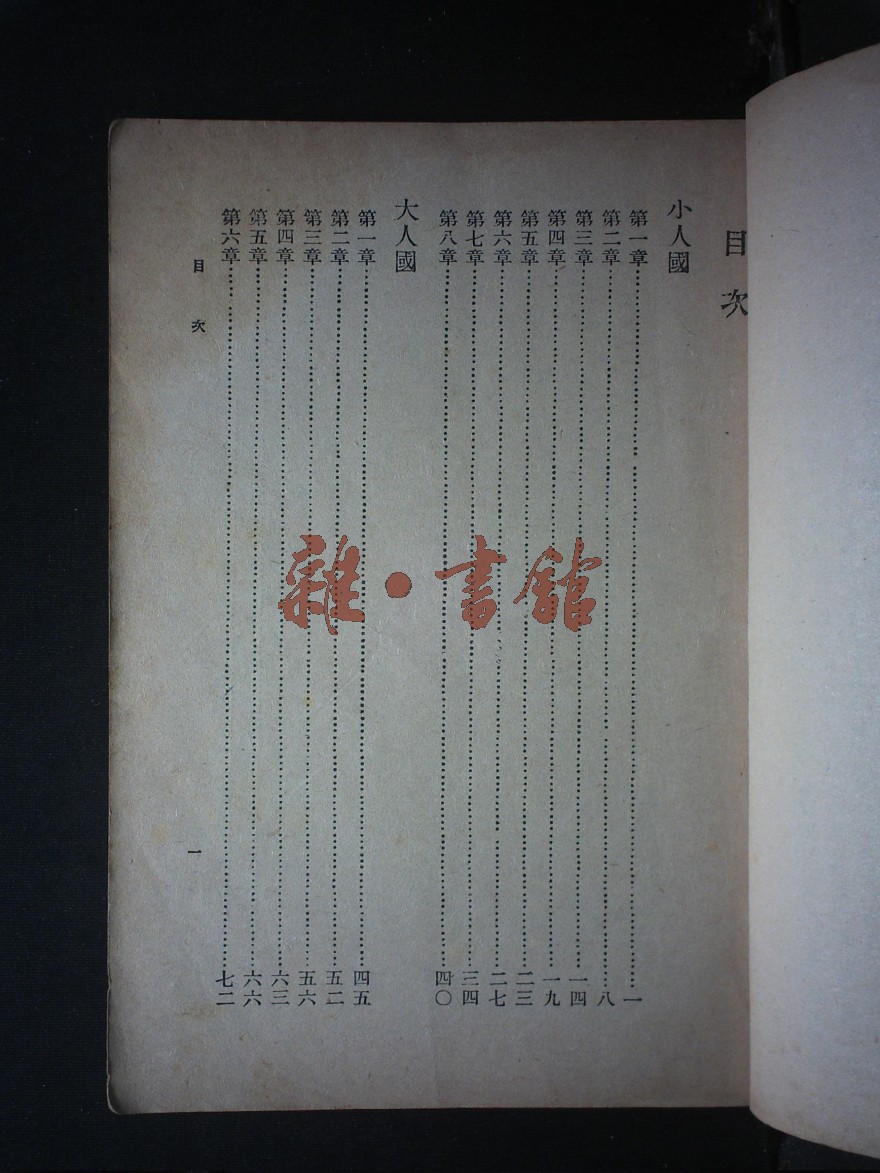 目次
小人國
第一章……一
第二章……八
第三章……一四
第四章……一九
第五章……二三
第六章……二七
第七章……三四
第八章……四〇
大人國
第一章……四五
第二章……五二
第三章……五六
第四章……六三
第五章……六六
第六章……七二
目次
一
雜·書館